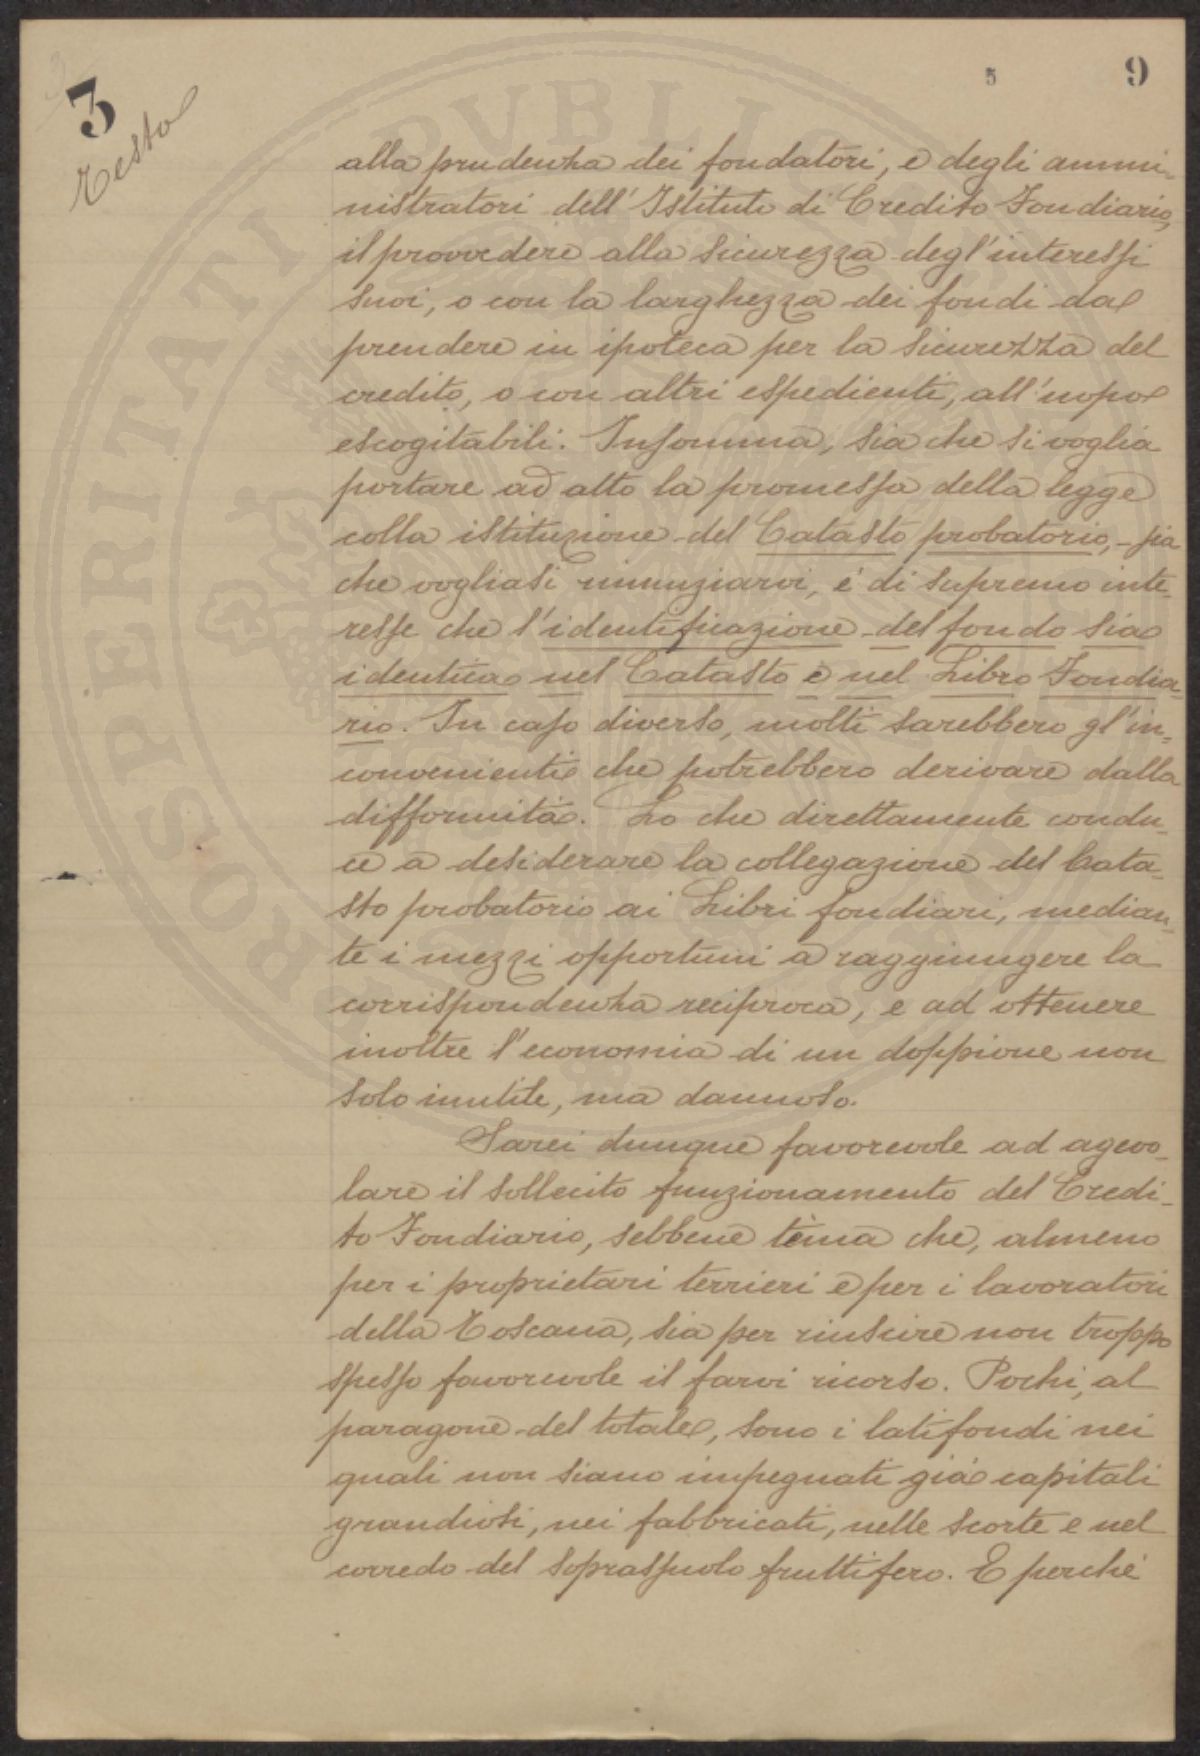 3
Testo
5
9
alla prudenza dei fondatori, e degli ammi-
nistratori dell'Istituto di Credito Fondiario,
il provvedere alla sicurezza degl'interessi
suoi, o con la larghezza dei fondi da
prendere in ipoteca per la sicurezza del
credito, o con altri espedienti, all'uopo
escogitabili. Insomma, sia che si voglia
portare ad atto la promessa della legge
colla istituzione del Catasto probatorio, - sia
che vogliasi rinunziarvi, é di supremo inte-
resse che l'identificazione del fondo sia
identica nel Catasto e nel Libro Fondia-
rio. In caso diverso, molti sarebbero gl'in-
convenienti che potrebbero derivare dalla
difformità. Lo che direttamente condu-
ce a desiderare la collegazione del Cata-
sto probatorio ai Libri fondiari, median-
te i mezzi opportuni a raggiungere la
corrispondenza reciproca, e ad ottenere
inoltre l'economia di un doppione non
solo inutile, ma dannoso.
Sarei dunque favorevole ad agevo-
lare il sollecito funzionamento del Credi-
to Fondiario, sebbene tèma che, almeno
per i proprietari terrieri e per i lavoratori
della Toscana, sia per riuscire non troppo
spesso favorevole il farvi ricorso. Pochi, al
paragone del totale, sono i latifondi nei
quali non siano impegnati già capitali
grandiosi, nei fabbricati, nelle scorte e nel
corredo del soprassuolo fruttifero. E perché
PROSPERITATI PUBLICAE